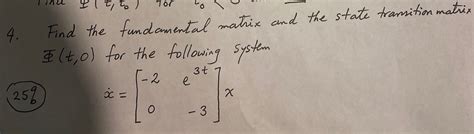 Find Φ(t, t₀) for t₀ <
4. Find the fundamental matrix and the state transition matrix
Φ(t,0) for the following system
(25%) ẋ = [ -2 e^{3t} ; 0 -3 ] x